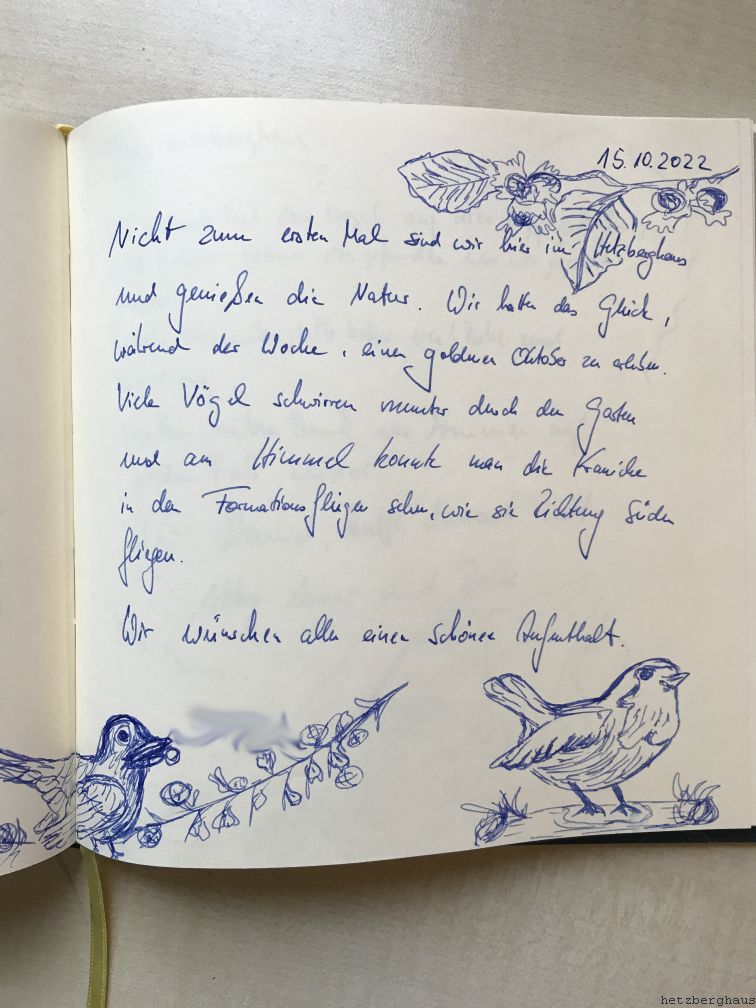 15.10.2022
Nicht zum ersten Mal sind wir hier im Hetzberghaus
und genießen die Natur. Wir hatten das Glück,
während der Woche, einen goldnen Oktober zu erleben.
Viele Vögel schwirren munter durch den Garten
und am Himmel konnte man die Kraniche
in den Formationsflügen sehn, wie sie Richtung Süden
fliegen.
Wir wünschen allen einen schönen Aufenthalt.
hetzberghaus